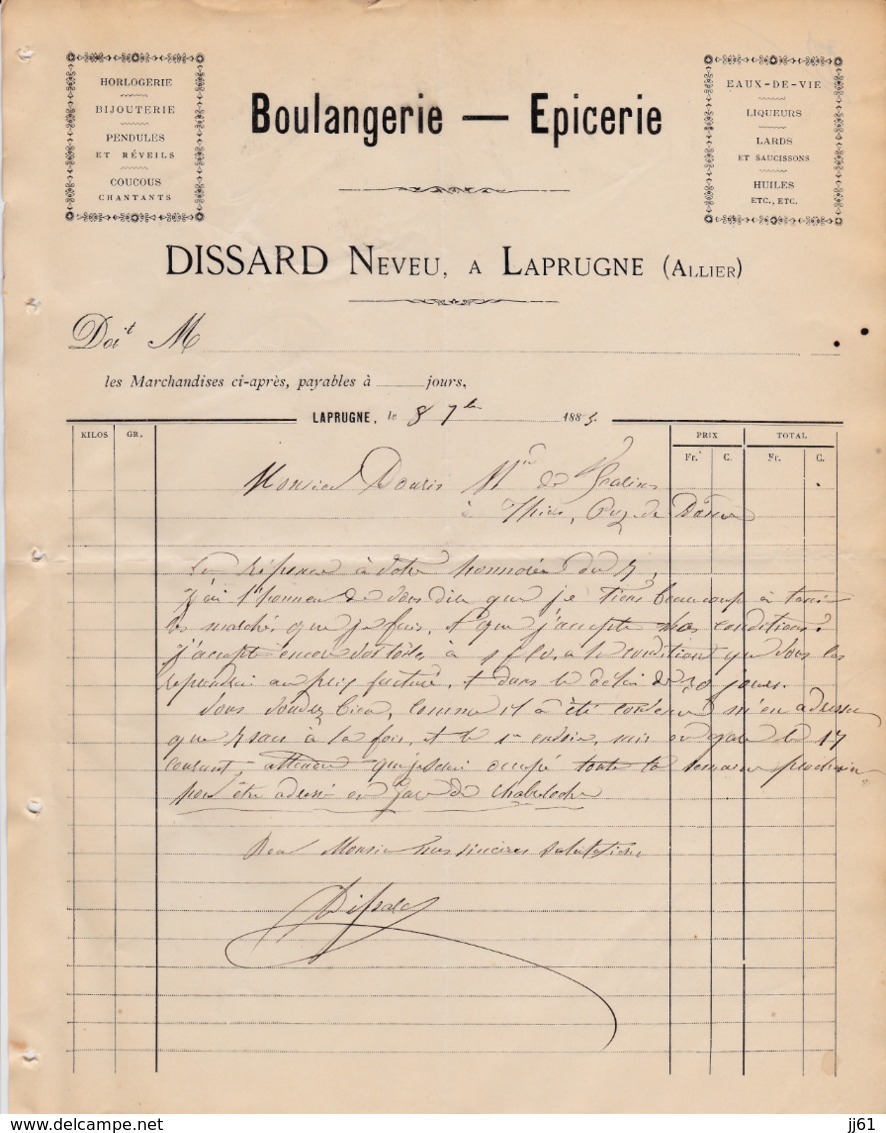 HORLOGERIE
BIJOUTERIE
PENDULES
ET RÉVEILS
COUCOUS
CHANTANTS
Boulangerie — Epicerie
EAUX-DE-VIE
LIQUEURS
LARDS
ET SAUCISSONS
HUILES
ETC., ETC.
DISSARD NEVEU, A LAPRUGNE (ALLIER)
Doit M
les Marchandises ci-après, payables à jours,
LAPRUGNE, le 8 7bre 1885
KILOS GR. PRIX TOTAL
Fr. C. Fr. C.
Monsieur Douris Mn de
à Thiers, Puy de Dôme
En réponse à votre honnorée du 7,
J'ai l'honneur de vous dire que je tiens beaucoup à tenir
les marchés que je fais, et que j'accepte vos conditions.
J'accepte encor vos toiles à a la condition que vous les
reprendrez au prix facturé, et dans le délai de 30 jours.
Vous voudrez bien, comme il a été convenu m'en adresser
que 7 sacs à la fois, et le 1er envoi, mis en gare le 17
courant, attendu que je serai occupé toute la semaine prochaine
pour être adressé en gare de Chabreloche
Recevez Monsieur nos sincères salutations
Dissard
delcampe.net
jj61